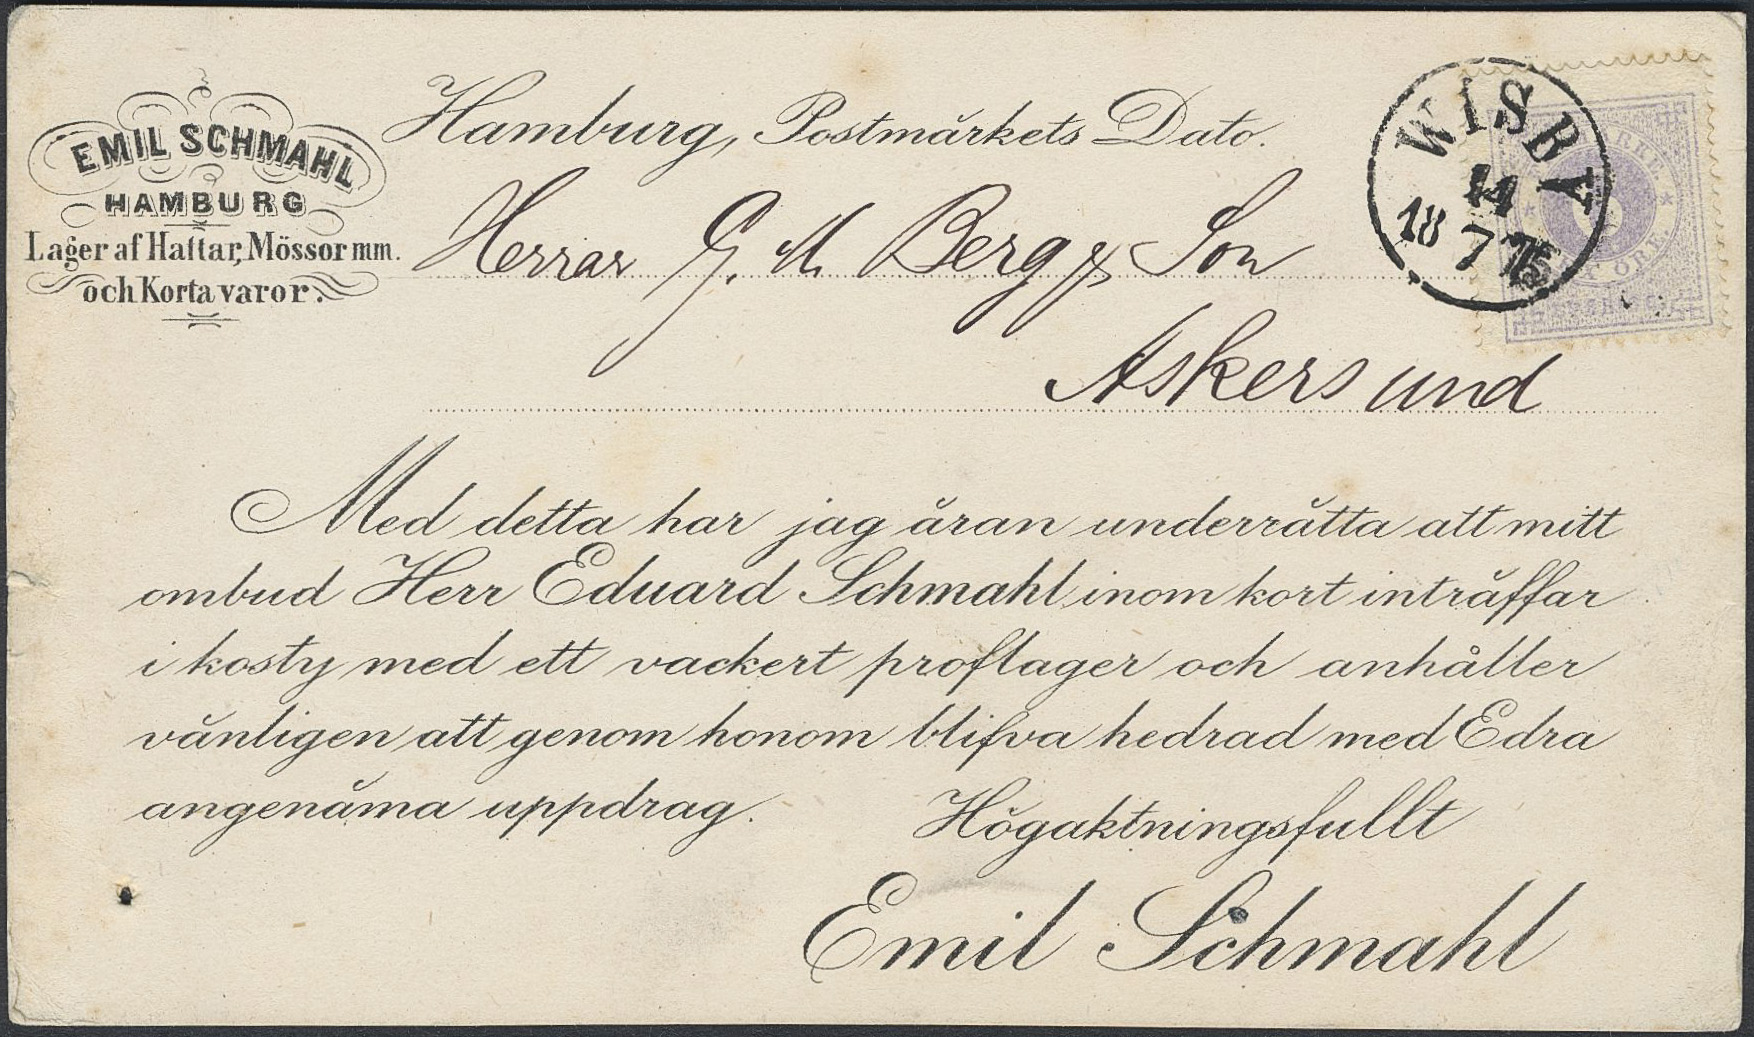 EMIL SCHMAHL
HAMBURG
Lager af Hattar, Mössor mm.
och Korta varor.
Hamburg, Postmärkets Dato.
WISBY
14
18 7 75
Herrar G. M. Berg & Son
Askersund
Med detta har jag äran underrätta att mitt
ombud Herr Eduard Schmahl inom kort inträffar
i kosty med ett vackert proflager och anhåller
vänligen att genom honom blifva hedrad med Edra
angenäma uppdrag.
Högaktningsfullt
Emil Schmahl